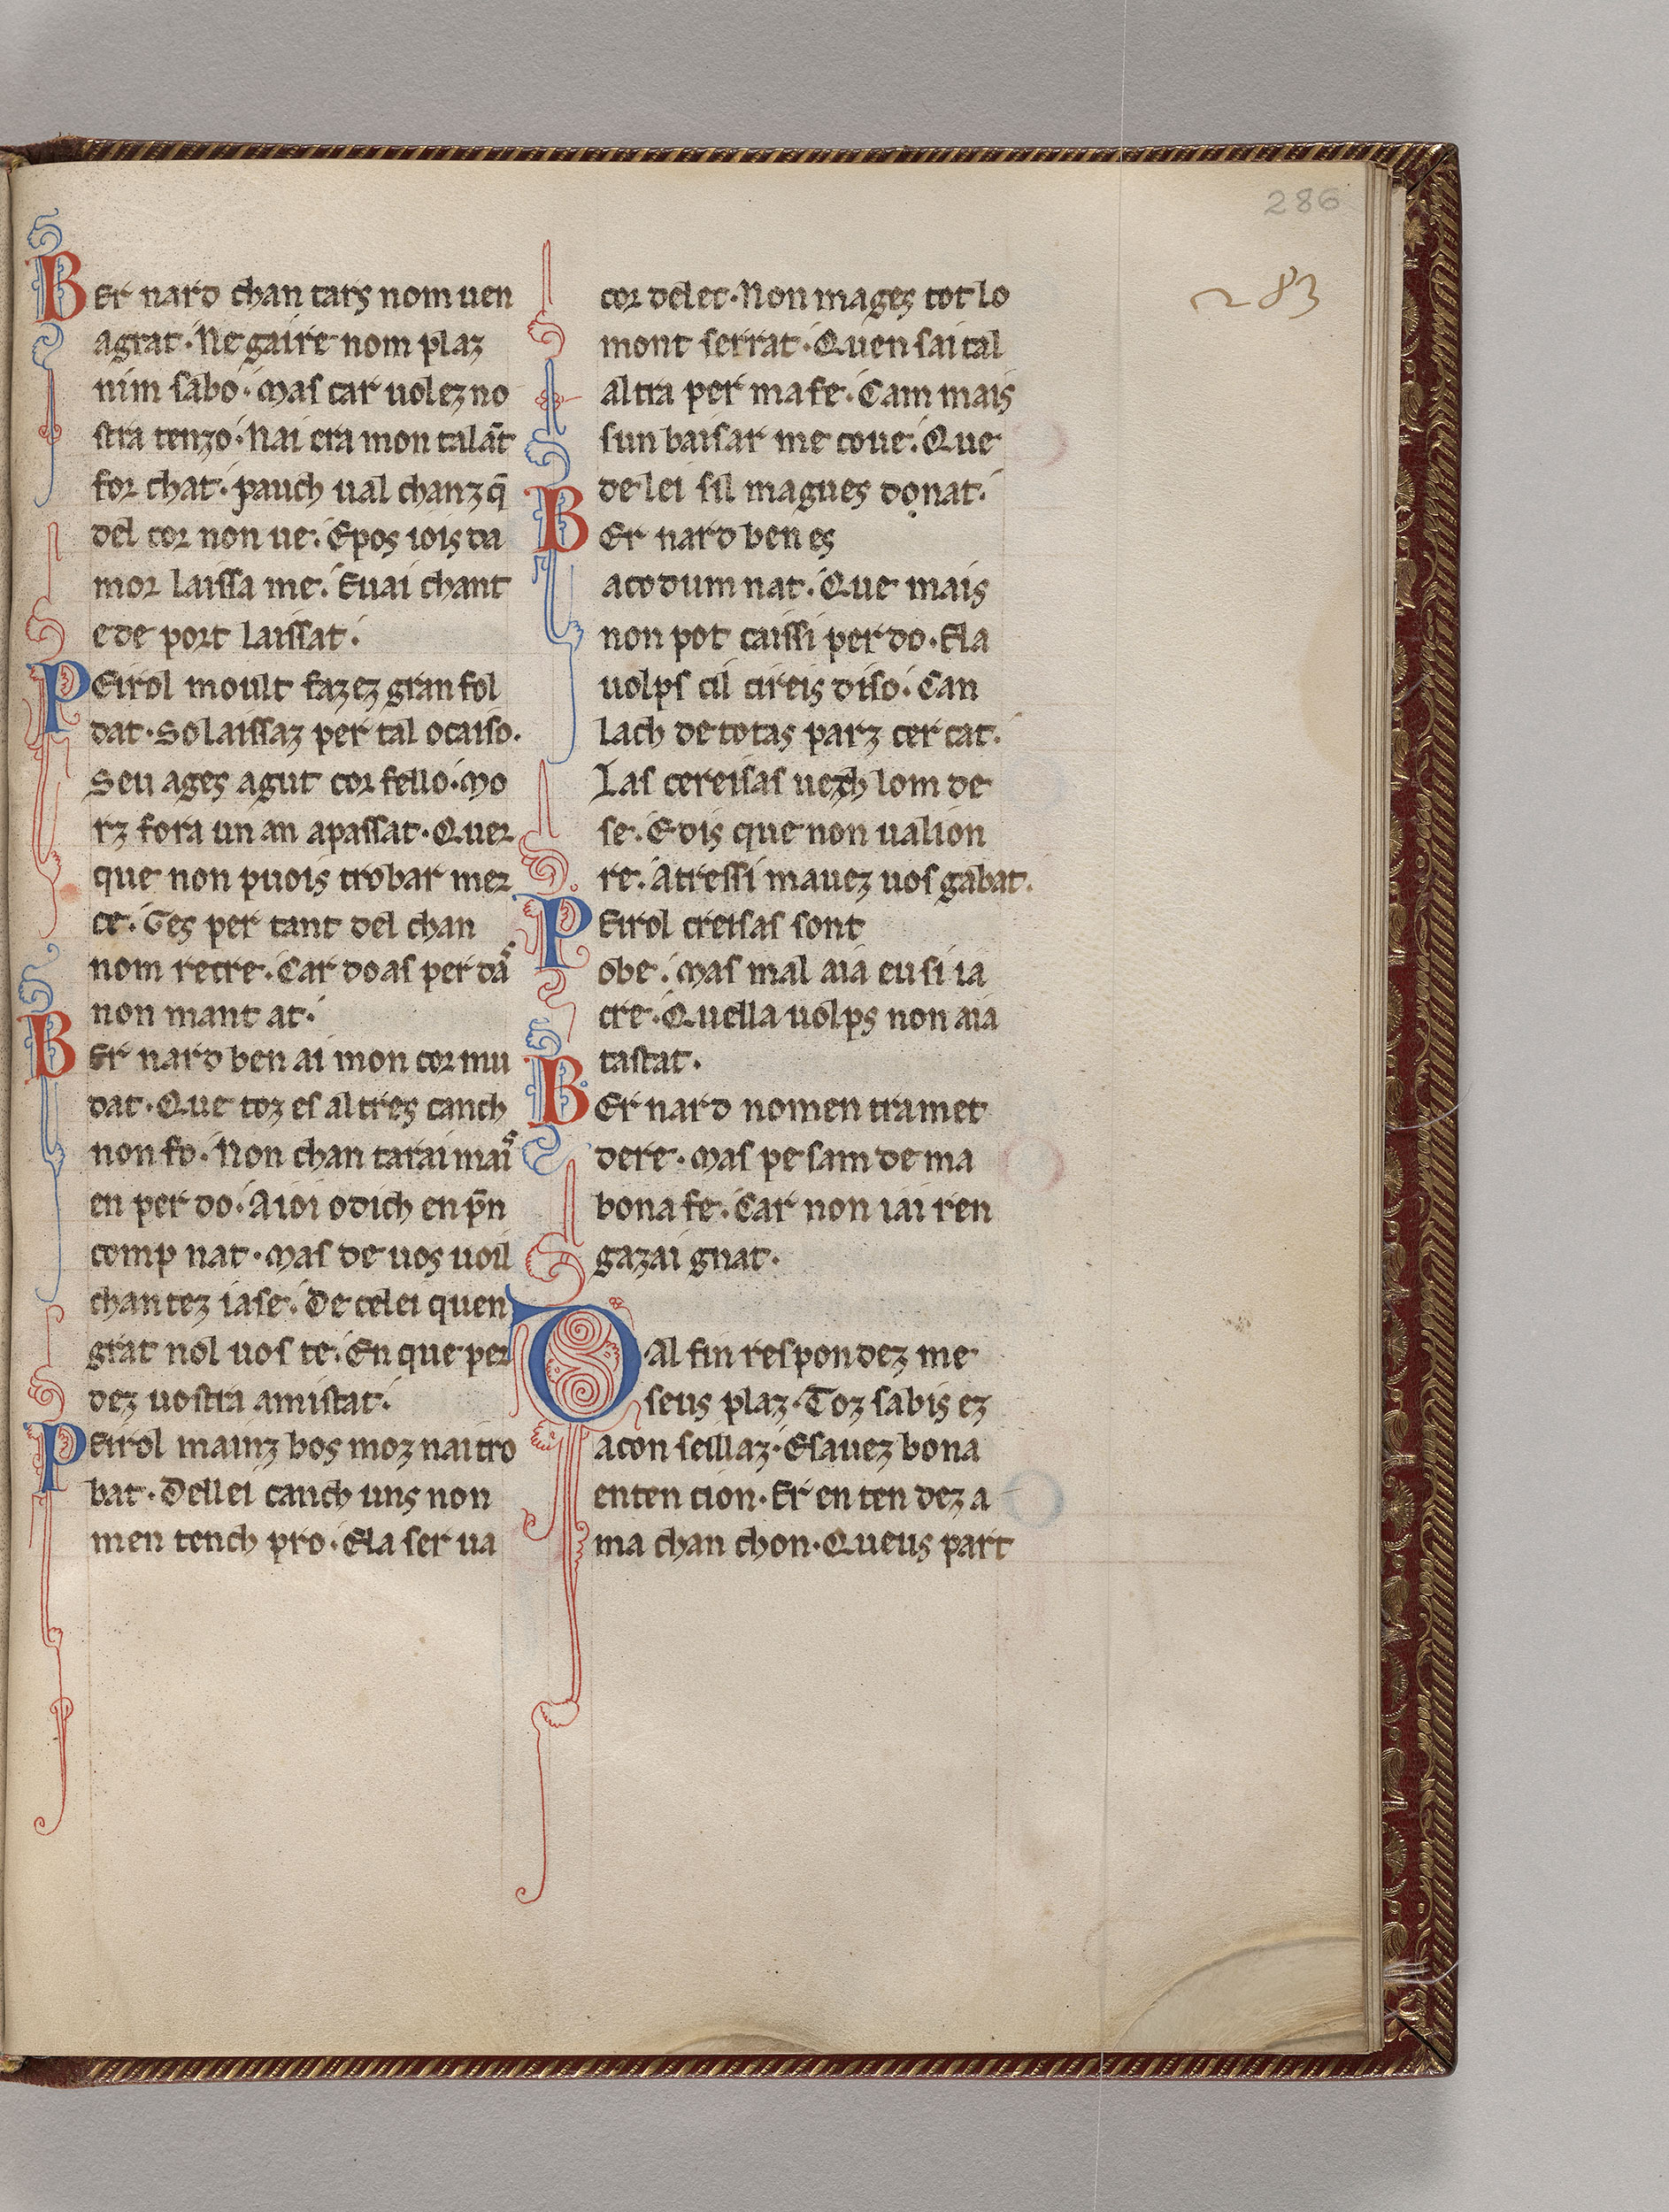 286
283
Ber nard chan tars nom uen
agrat. Ne gaire nom plaz
nim sabo. Mas car uolez no
stra tenzo. Nai cra mon talāt
for chat. pauch ual chanz q̄
del cor non ue. Epos iois da
mor laissa me. Euai chant
e de port laissat.
Peirol moult fazez gran fol
dat. So laissaz per tal ocaiso.
Seu ages agut cor fello. Mo
rz fora un an apassat. Quer
que non puois trobar mer
ce. Ges per tant del chan
nom recre. Car doas per dās
non mant at.
Ber nard ben ai mon cor mu
dat. Que toz es altres canch
non fo. Non chan tarai mais
en per do. Aioi odich en p̄n
comp nat. Mas de uos uoil
chantez iase. De celei quen
grat nol uos te. En que per
dez uostra amistat.
Peirol mainz bos moz nai tro
bat. Dellei canch uns non
men tench pro. Ela ser ua
cor delet. Non mages tot lo
mont serrat. Quen sai tal
altra per ma fe. Cam mais
sun baisar me coue. Que
de lei sil magues donat.
Ber nard ben es
acodum nat. Que mais
non pot caissi per do. Ela
uolps cil cireis diso. Can
lach de totas parz cer cat.
Las cereisas uezch lom de
se. E dis que non ualion
re. Atressi mauez uos gabat.
Peirol creisas sont
obe. Mas mal aia eu si ia
cre. Quella uolps non aia
tastat.
Ber nard nomen tramet
dere. Mas pe sam de ma
bona fe. Car non iai ren
gazai gnat.
Tal fin respondez me
seus plaz. Toz sabis ez
acon seillaz. Esauez bona
enten cion. Er en ten dez a
ma chan chon. Queus part